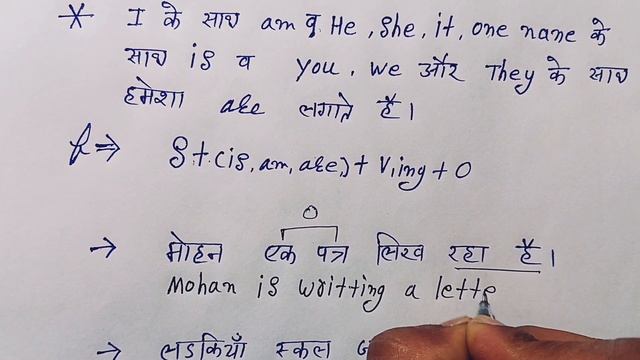 * I के साथ am व He, She, it, one name के
साथ is व you, we और They के साथ
हमेशा are लगाते है।
f ⇒ S + (is, am, are) + V₁ing + O
O
→ मोहन एक पत्र लिख रहा है।
Mohan is writting a lette
→ लडकियाँ स्कूल